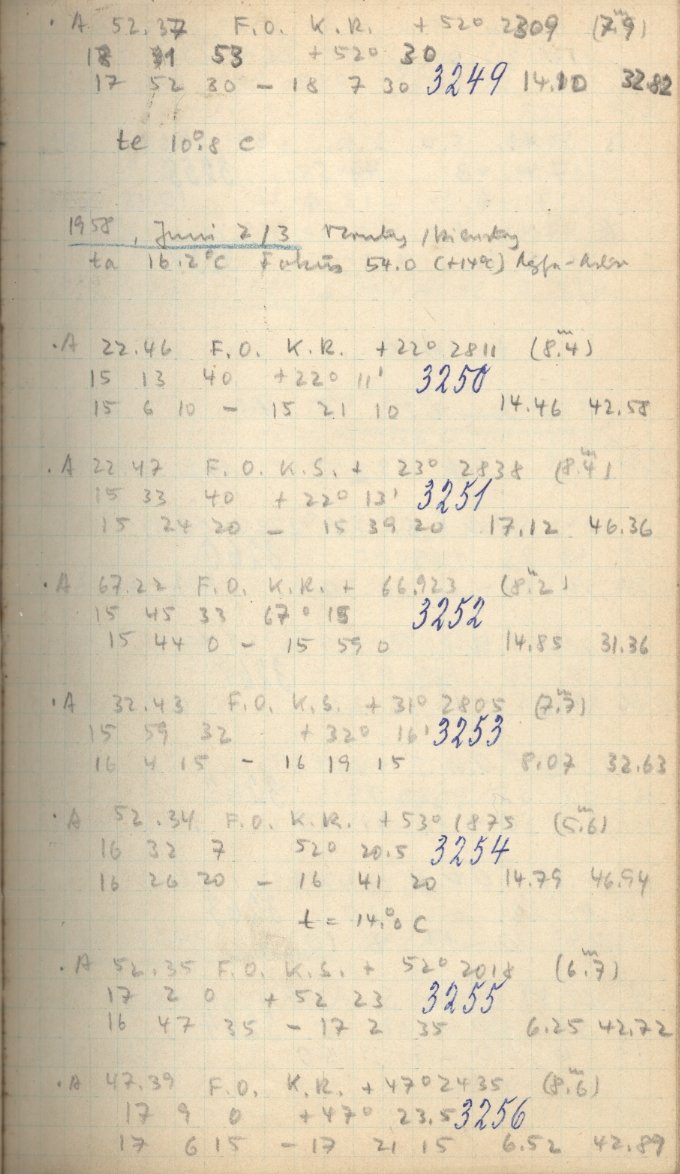 · A 52.37 F.O. K.R. + 52° 2309 (7ᵐ.9)
18 31 53 + 52° 30
17 52 30 – 18 7 30 3249 14.10 32.82
te 10°.8 C
1958, Juni 2/3
ta 16.2°C Fokus 54.0 (+14°C)
· A 22.46 F.O. K.R. + 22° 2811 (8ᵐ.4)
15 13 40 + 22° 11' 3250
15 6 10 – 15 21 10 14.46 42.58
· A 22.47 F.O. K.S. + 23° 2838 (8ᵐ.4)
15 33 40 + 22° 13' 3251
15 24 20 – 15 39 20 17.12 46.36
· A 67.22 F.O. K.R. + 66.923 (8ᵐ.2)
15 45 33 67° 15 3252
15 44 0 – 15 59 0 14.85 31.36
· A 32.43 F.O. K.S. + 31° 2805 (7ᵐ.7)
15 59 32 + 32° 16' 3253
16 4 15 – 16 19 15 8.07 32.63
· A 52.34 F.O. K.R. + 53° 1875 (5ᵐ.6)
16 32 7 52° 20.5 3254
16 26 20 – 16 41 20 14.79 46.94
t = 14°.0 C
· A 52.35 F.O. K.S. + 52° 2018 (6ᵐ.7)
17 2 0 + 52 23 3255
16 47 35 – 17 2 35 6.25 42.72
· A 47.39 F.O. K.R. + 47° 2435 (8ᵐ.6)
17 9 0 + 47° 23.5 3256
17 6 15 – 17 21 15 6.52 42.89